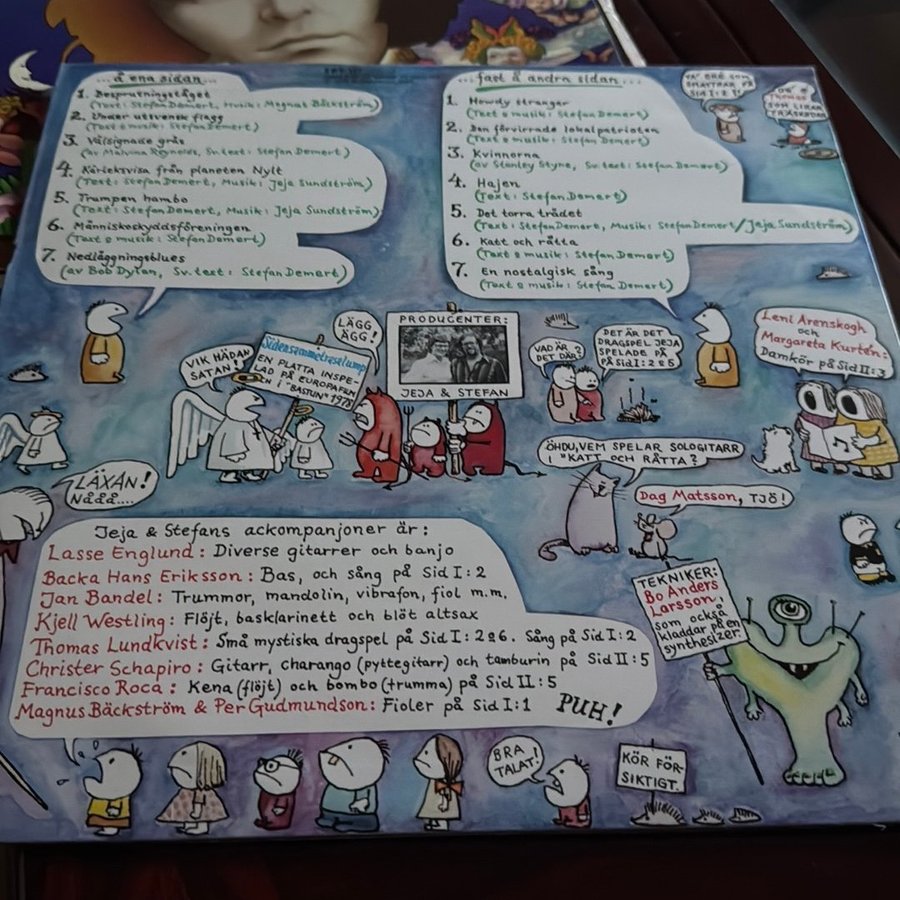 ...å ena sidan...
1. Besprutningståget
(Text: Stefan Demert, Musik: Magnus Bäckström)
2. Under utsvensk flagg
(Text & musik: Stefan Demert)
3. Välsignade gräs
(av Malvina Reynolds, Sv. text: Stefan Demert)
4. Kärleksvisa från planeten Nylt
(Text: Stefan Demert, Musik: Jeja Sundström)
5. Trumpen hambo
(Text: Stefan Demert, Musik: Jeja Sundström)
6. Människoskyddsföreningen
(Text & musik: Stefan Demert)
7. Nedläggningsblues
(av Bob Dylan, Sv. text: Stefan Demert)
...fast å andra sidan...
1. Howdy stranger
(Text & musik: Stefan Demert)
2. Den förvirrade lokalpatrioten
(Text & musik: Stefan Demert)
3. Kvinnorna
(av Stanley Styne, Sv. text: Stefan Demert)
4. Hajen
(Text: Stefan Demert)
5. Det torra trädet
(Text: Stefan Demert, Musik: Stefan Demert/Jeja Sundström)
6. Katt och råtta
(Text & musik: Stefan Demert)
7. En nostalgisk sång
(Text & musik: Stefan Demert)
SOM
SMATTRAR PÅ
SID I:2?
THOMAS
SOM LIRAR
TRÄSKEDAR
VIK HÄDAN
SATAN!
Sidensammetraselump
EN PLATTA INSPE-
LAD PÅ EUROPAFILM
EN I "BASTUN" 1978
LÄGG
ÄGG!
PRODUCENTER:
JEJA & STEFAN
VAD ÄR
DET DÄR?
DET ÄR DET
DRAGSPEL JEJA
SPELADE PÅ
PÅ SID I: 2 & 6
Leni Arenskogh
och
Margareta Kurtén:
Damkör på Sid II:3
LÄXAN!
NÅÅÅ....
ÖHDU, VEM SPELAR SOLOGITARR
I "KATT OCH RÅTTA?
Dag Matsson, TJÖ!
Jeja & Stefans ackompanjoner är:
Lasse Englund: Diverse gitarrer och banjo
Backa Hans Eriksson: Bas, och sång på Sid I:2
Jan Bandel: Trummor, mandolin, vibrafon, fiol m.m.
Kjell Westling: Flöjt, basklarinett och blöt altsax
Thomas Lundkvist: Små mystiska dragspel på Sid I: 2 & 6. Sång på Sid I:2
Christer Schapiro: Gitarr, charango (pyttegitarr) och tamburin på Sid II:5
Francisco Roca: Kena (flöjt) och bombo (trumma) på Sid II:5
Magnus Bäckström & Per Gudmundson: Fioler på Sid I:1
PUH!
TEKNIKER:
Bo Anders
Larsson,
som också
kladdar på en
synthesizer.
BRA
TALAT!
KÖR FÖR-
SIKTIGT.